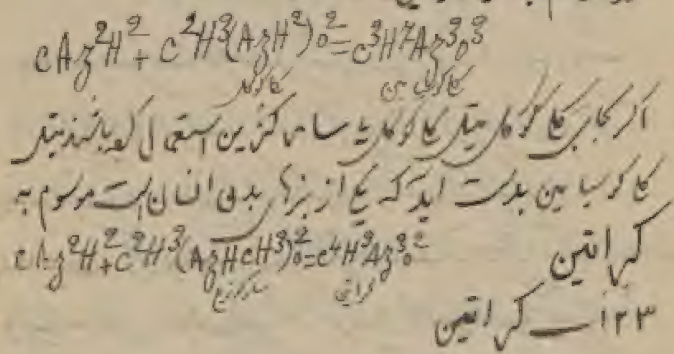 cAz²H² + c²H³(AzH²)o² = c³H⁷Az³o³
گلوکوکل
گلوکوسیامین
اگر بجای گلوکوکل متیل گلوکوکل یا سارکزین استعمال کرده باشند متیل
گلوکوسیامین بدست آید که یکی از بزهای بدن انسان است موسوم به
کراتین
cAz²H² + c²H³(AzHcH³)o² = c⁴H⁹Az³o²
سارکوزین
کراتین
۱۲۳ کراتین